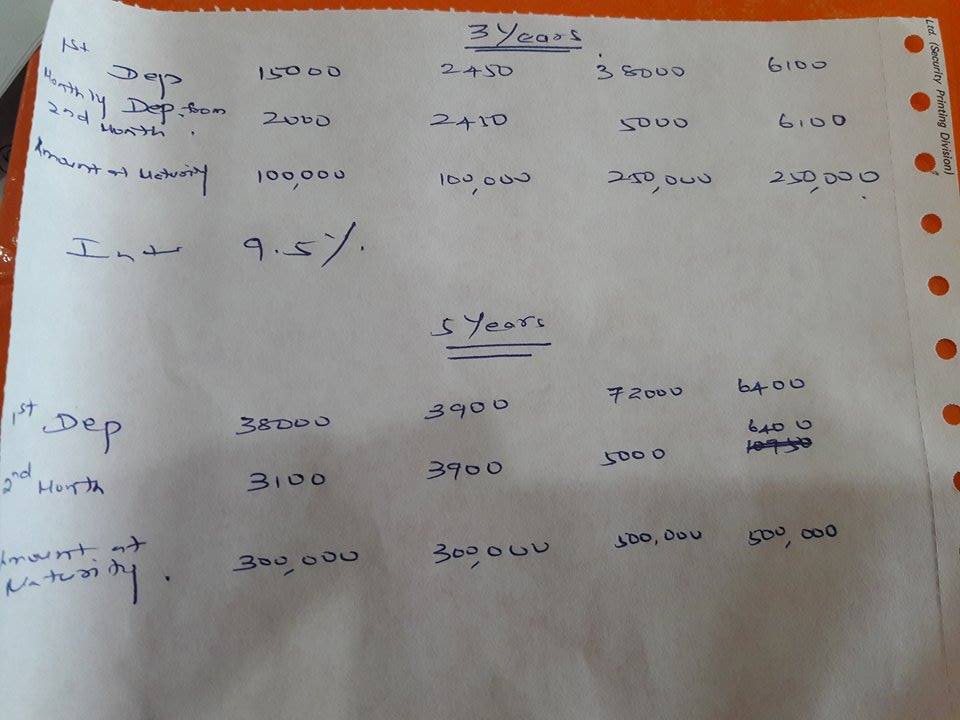 3 Years
1st Dep 15000 2450 38000 6100
Monthly Dep. from
2nd Month. 2000 2450 5000 6100
Amount at Maturity 100,000 100,000 250,000 250,000
Int 9.5%.
5 Years
1st Dep 38000 3900 72000 6400
2nd Month 3100 3900 5000 6400
Amount at
Maturity. 300,000 300,000 500,000 500,000
Ltd. (Security Printing Division)